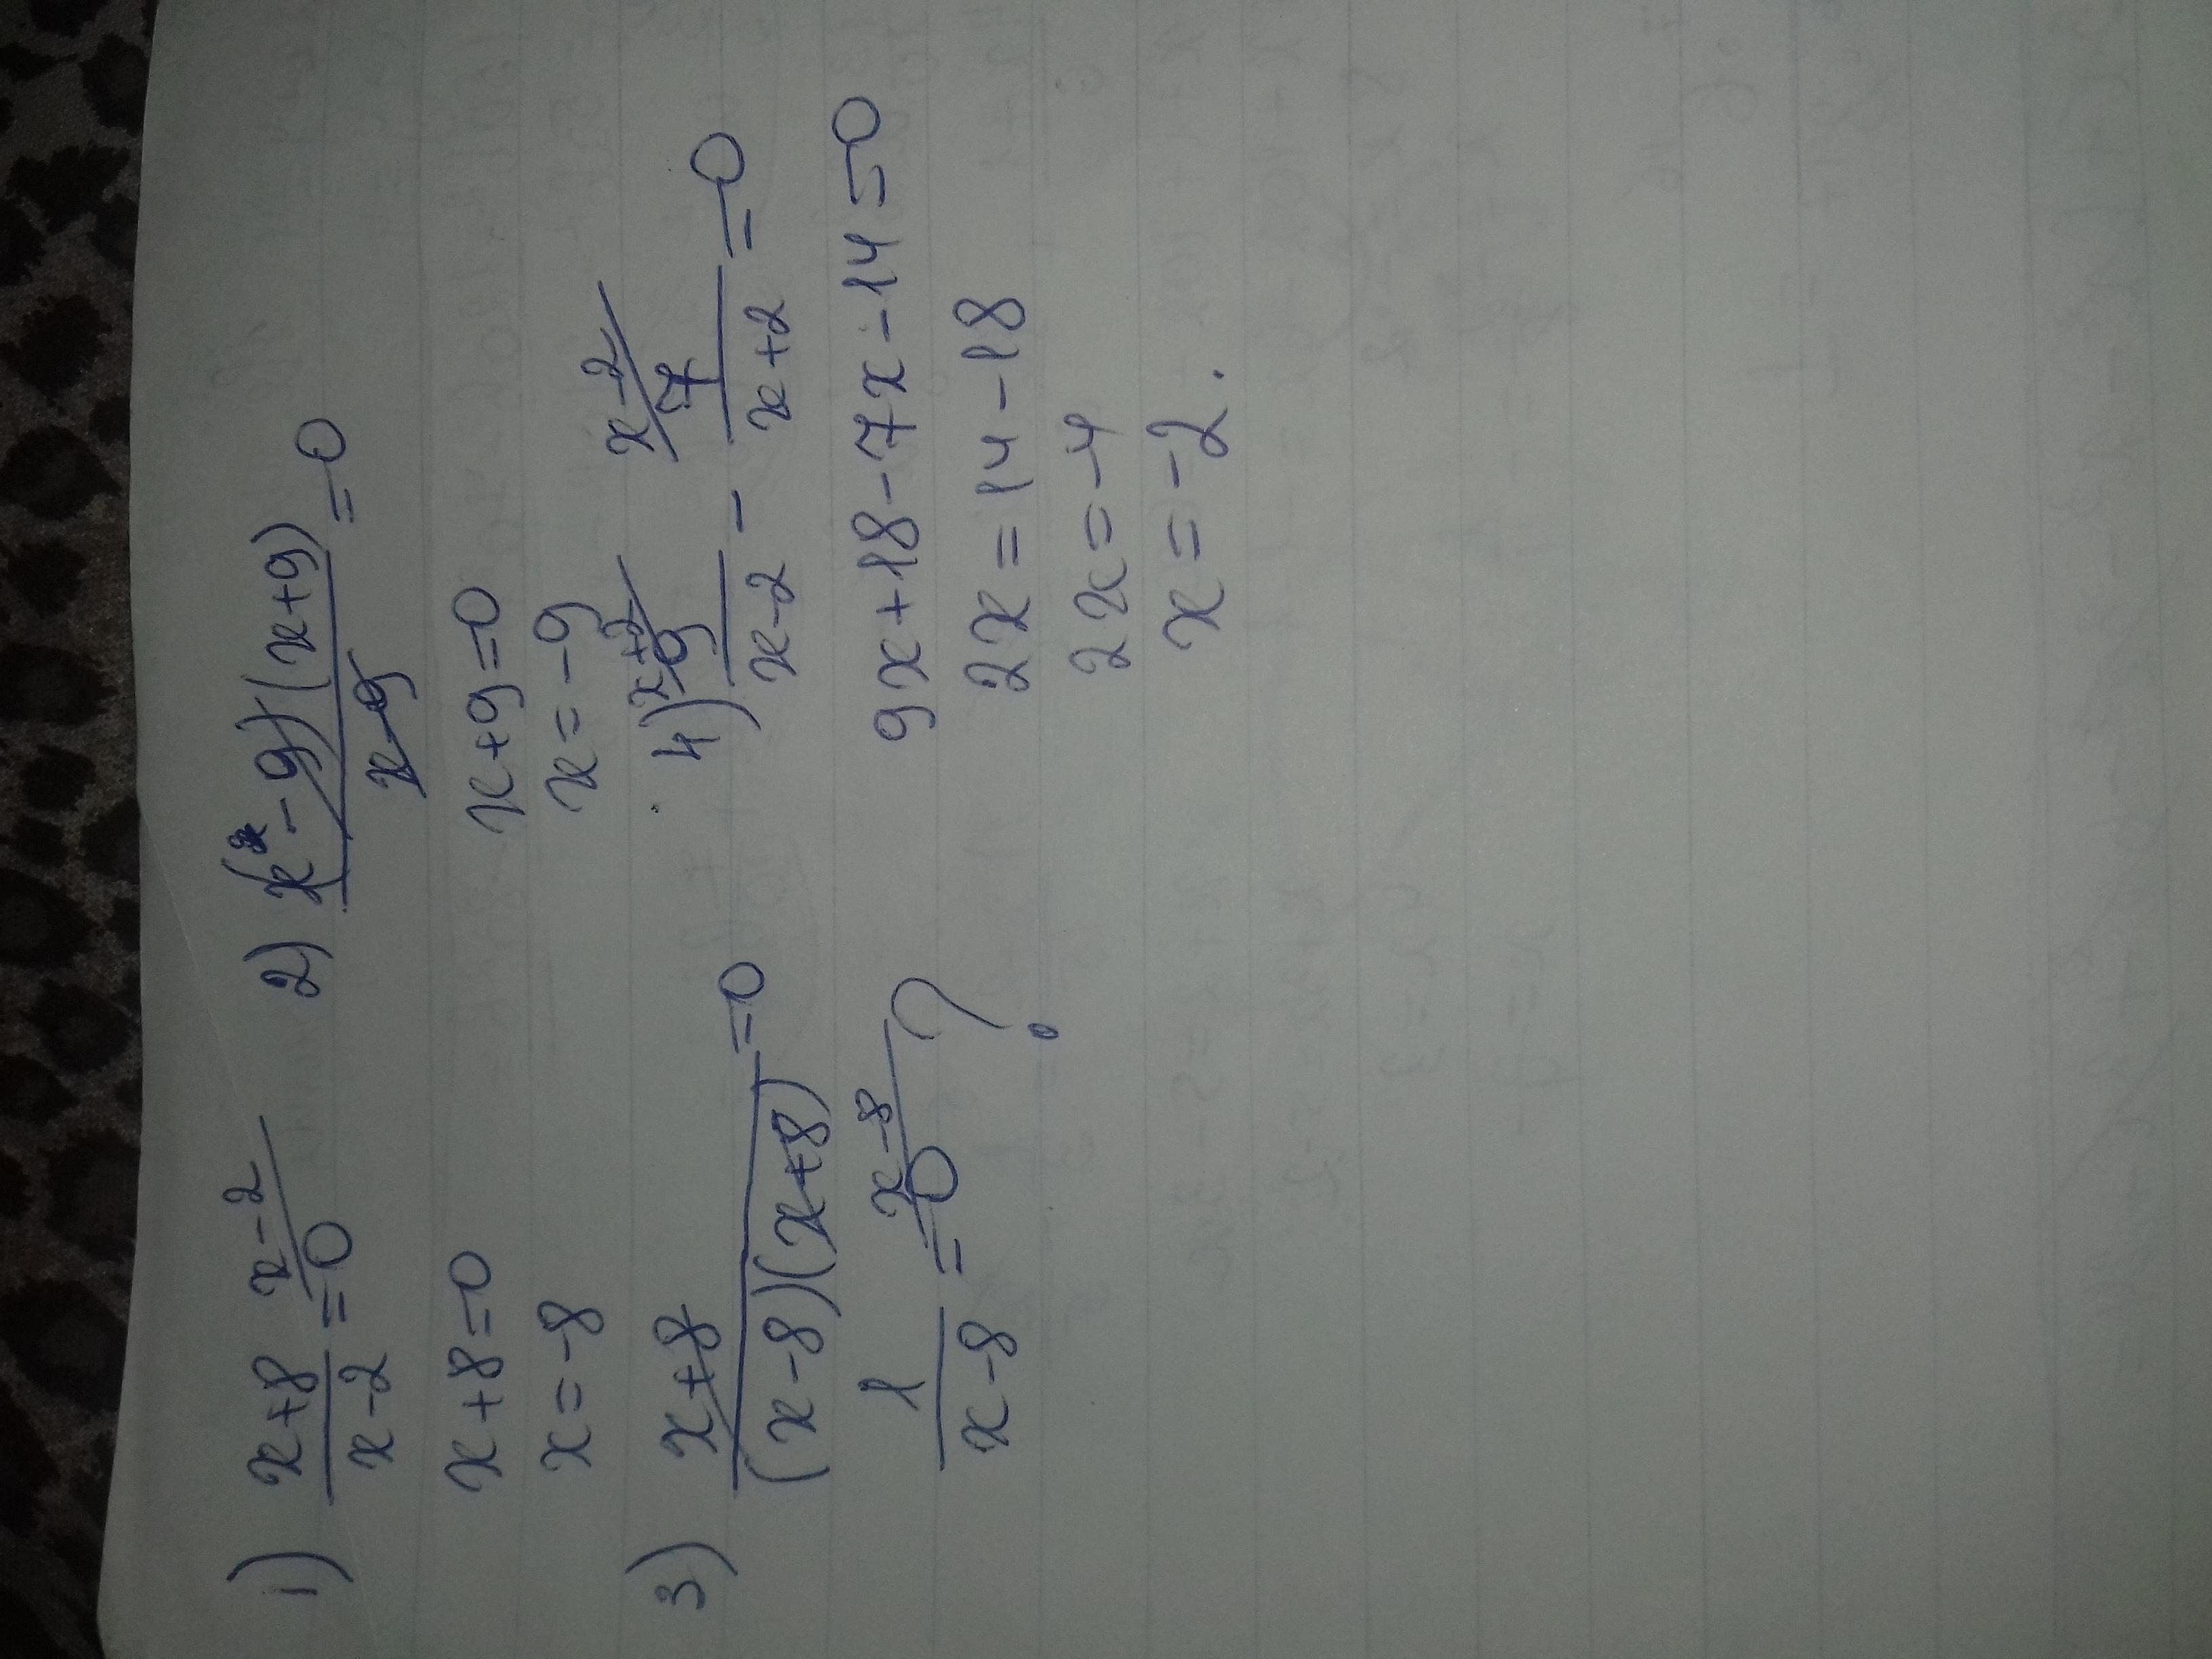 1) (x+8)/(x-2) = 0 x-2
x+8=0
x=-8
2) (x-9)(x+9)/(x-9) = 0
x+9=0
x=-9
3) (x+8)/((x-8)(x+8)) = 0
1/(x-8) = 0 x-8 ?
4) x+2 9/(x-2) - x-2 7/(x+2) = 0
9x+18-7x-14=0
2x=14-18
2x=-4
x=-2.